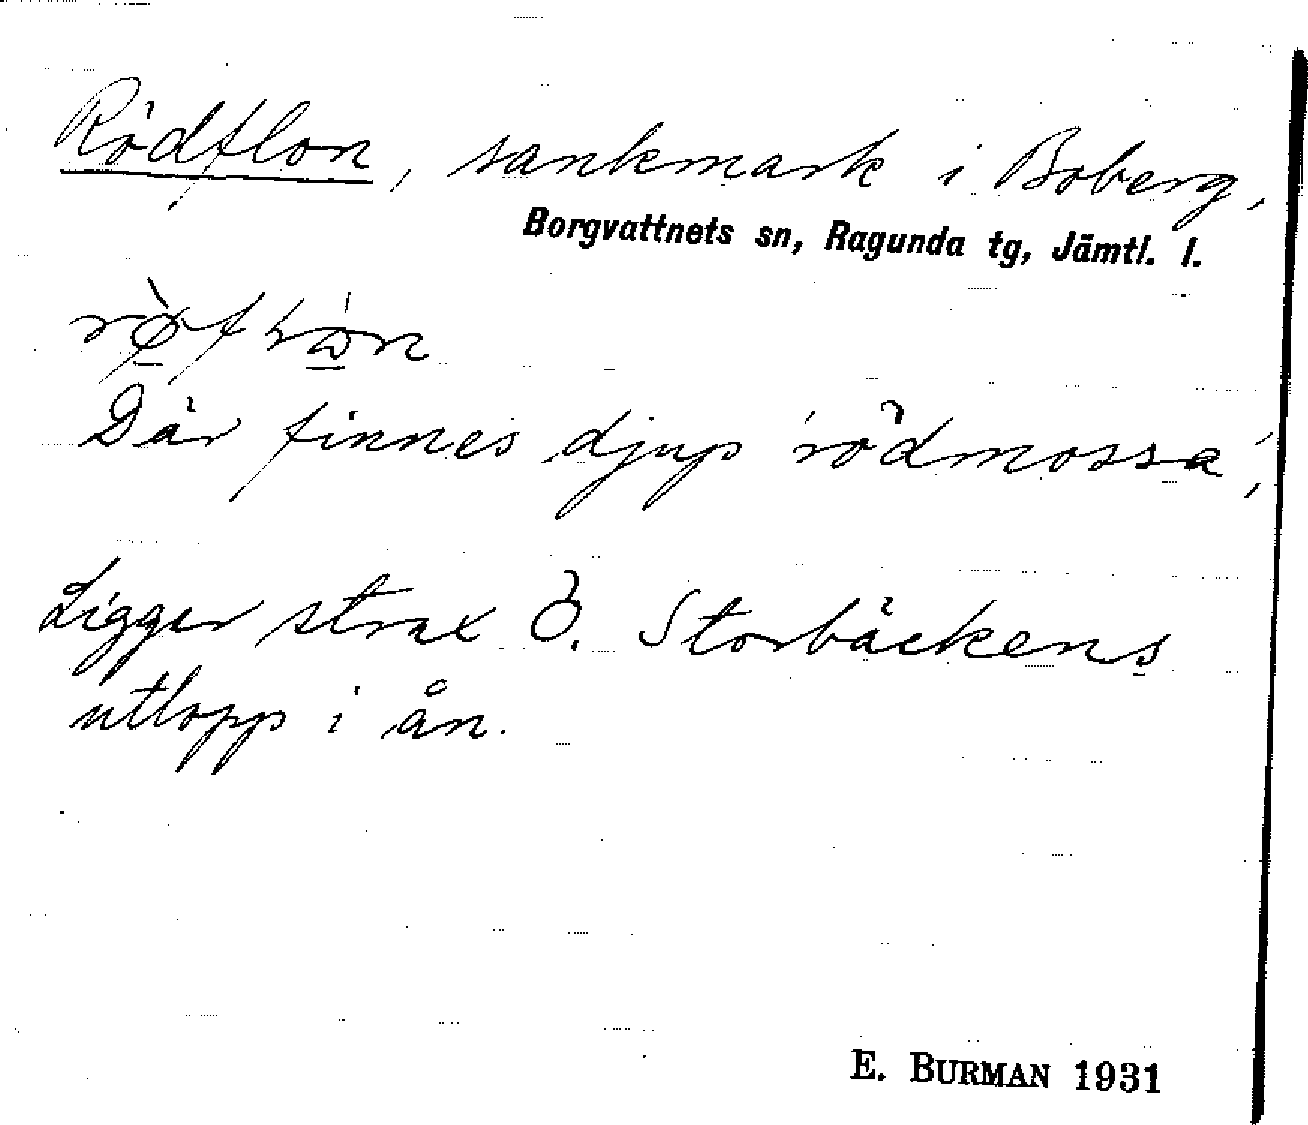 Rödflon, sankmark i Boberg,
Borgvattnets sn, Ragunda tg, Jämtl. l.
Där finnes djup rödmossa,
Ligger strax Ö. Storbäckens
utlopp i ån.
E. BURMAN 1931